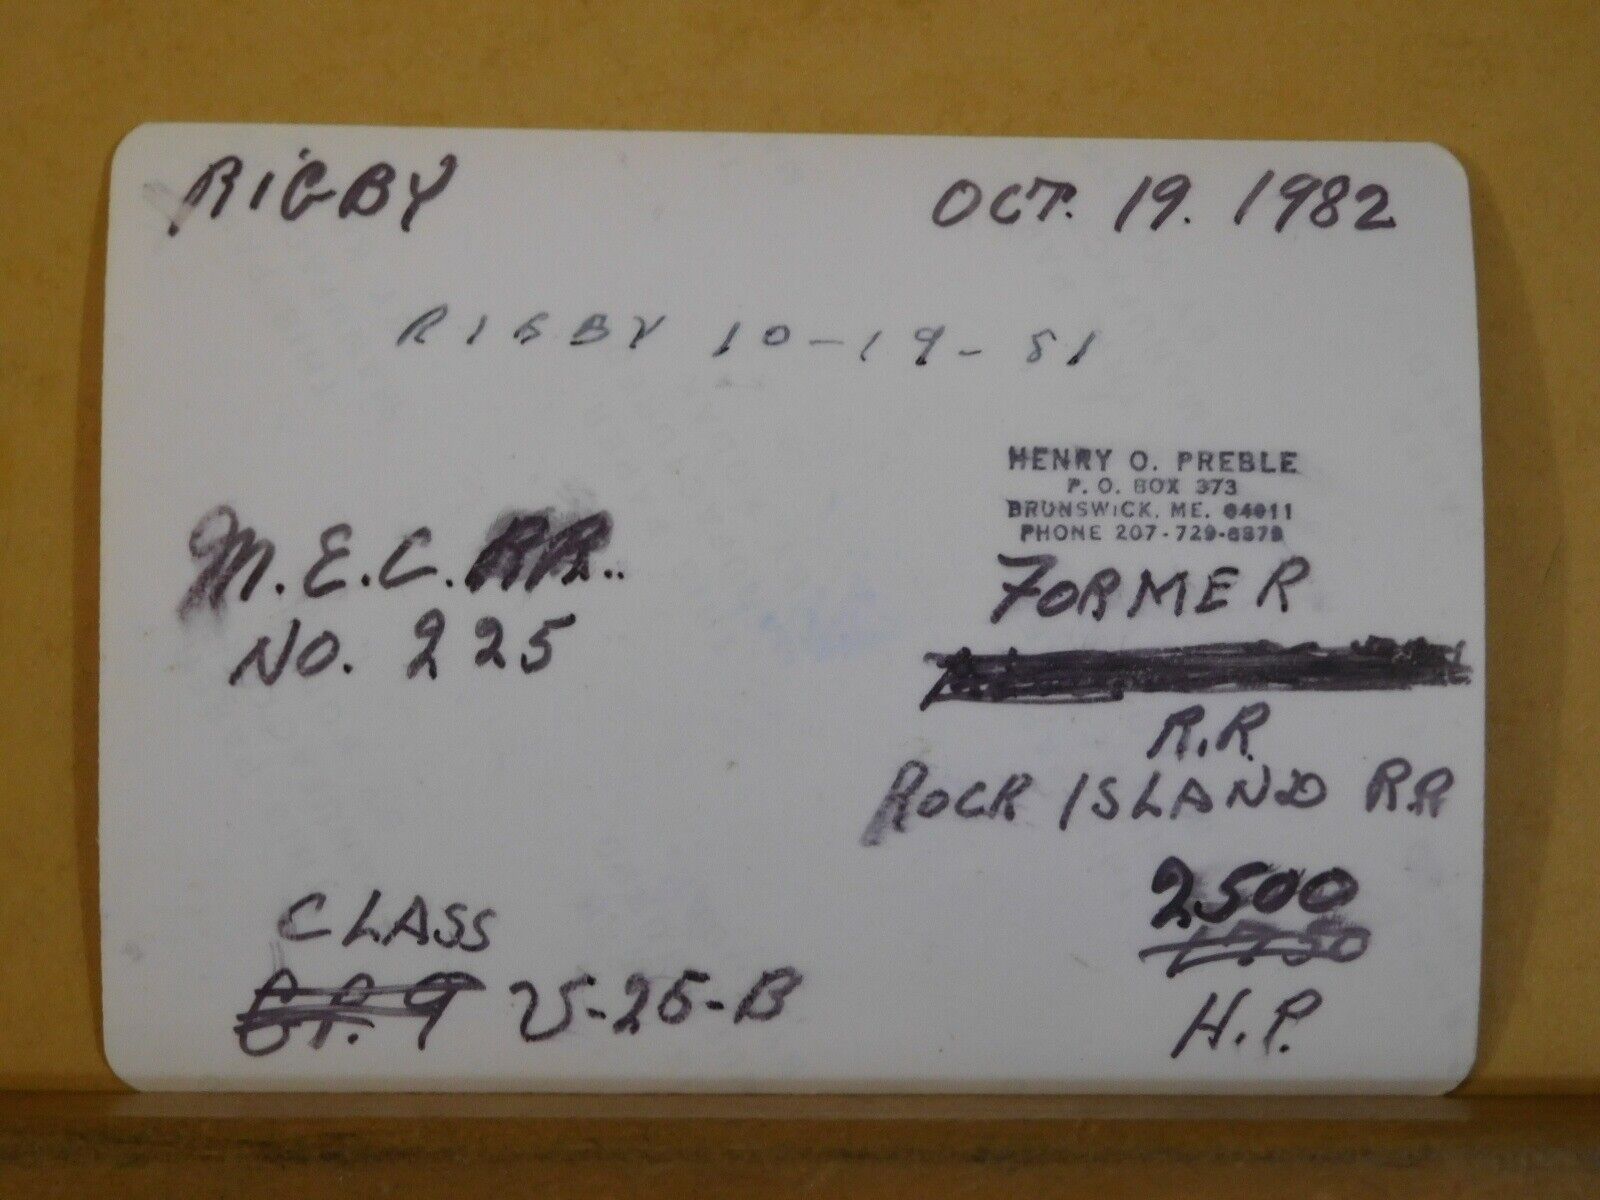 RIGBY
OCT. 19. 1982
RIGBY 10-19-81
HENRY O. PREBLE
P. O. BOX 373
BRUNSWICK, ME. 04011
PHONE 207-729-
M.E.C. RR..
NO. 225
FORMER
R.R.
ROCK ISLAND R.R
2500
1750
H.P.
CLASS
G.P. 9 U-25-B